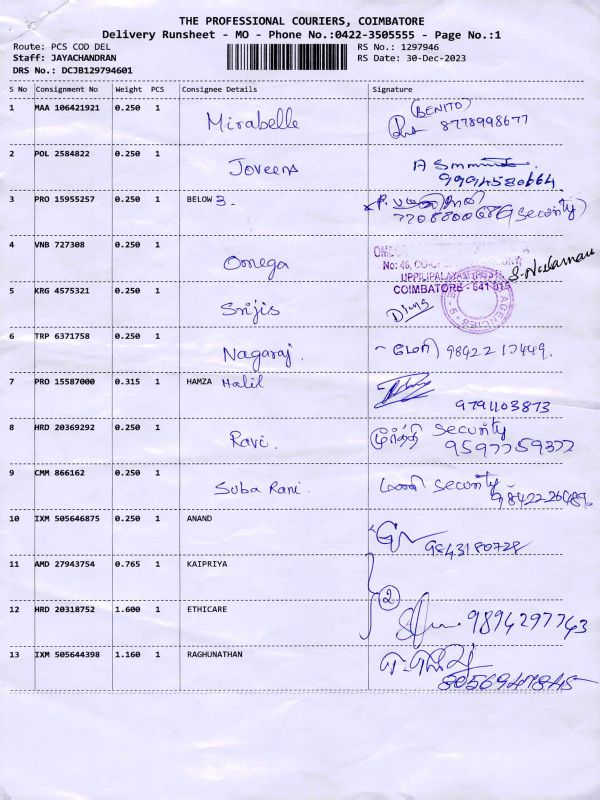 THE PROFESSIONAL COURIERS, COIMBATORE
Delivery Runsheet - MO - Phone No.:0422-3505555 - Page No.:1
Route: PCS COD DEL
RS No.: 1297946
Staff: JAYACHANDRAN
RS Date: 30-Dec-2023
DRS No.: DCJB129794601
S No Consignment No Weight PCS Consignee Details Signature
1 MAA 106421921 0.250 1 Mirabelle (BENITO) 8778998677
2 POL 2584822 0.250 1 Joveens 9994580664
3 PRO 15955257 0.250 1 BELOW 3. (Security)
4 VNB 727308 0.250 1 Omega
No: 46,
UPPILIPALAYAM
COIMBATORE - 641 015
AGENCIES
5 KRG 4575321 0.250 1 Srijis
6 TRP 6371758 0.250 1 Nagaraj. 98422 17449.
7 PRO 15587000 0.315 1 HAMZA Halil 9791103873
8 HRD 20369292 0.250 1 Ravi. மூர்த்தி Security
9597759372
9 CMM 866162 0.250 1 Suba Rani. Security
10 IXM 505646875 0.250 1 ANAND 9843180728
11 AMD 27943754 0.765 1 KAIPRIYA
②
12 HRD 20318752 1.600 1 ETHICARE 9894297743
13 IXM 505644398 1.160 1 RAGHUNATHAN 8056947845